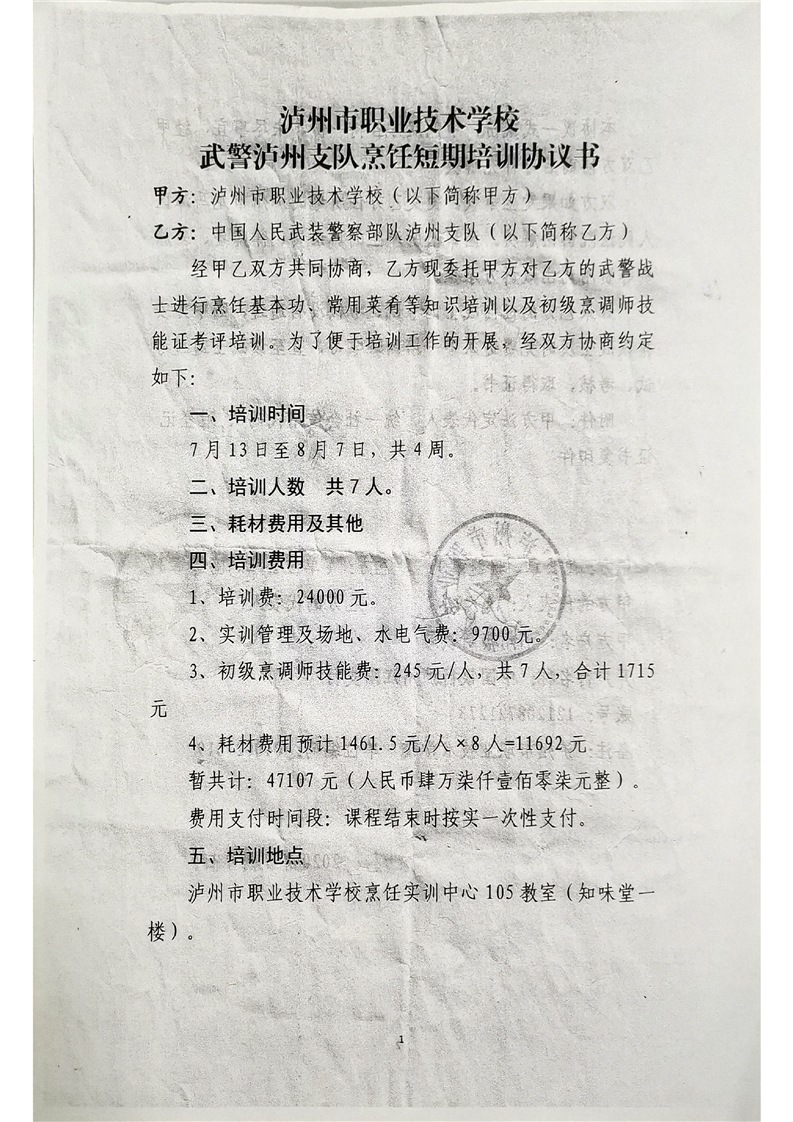 泸州市职业技术学校
武警泸州支队烹饪短期培训协议书
甲方：泸州市职业技术学校（以下简称甲方）
乙方：中国人民武装警察部队泸州支队（以下简称乙方）
经甲乙双方共同协商，乙方现委托甲方对乙方的武警战
士进行烹饪基本功、常用菜肴等知识培训以及初级烹调师技
能证考评培训。为了便于培训工作的开展，经双方协商约定
如下：
一、培训时间
7月13日至8月7日，共4周。
二、培训人数 共7人。
三、耗材费用及其他
四、培训费用
1、培训费：24000元。
2、实训管理及场地、水电气费：9700元。
3、初级烹调师技能费：245元/人，共7人，合计1715
元
4、耗材费用预计1461.5元/人×8人=11692元
暂共计：47107元（人民币肆万柒仟壹佰零柒元整）。
费用支付时间段：课程结束时按实一次性支付。
五、培训地点
泸州市职业技术学校烹饪实训中心105教室（知味堂一
楼）。
1